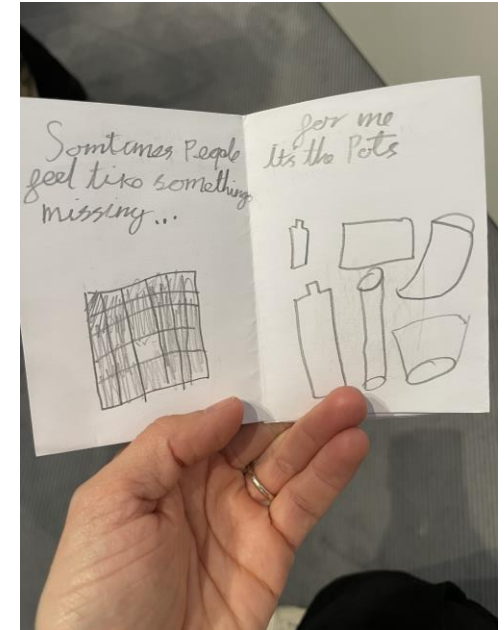 Somtimes People
feel like something
missing...
for me
Its the Pots